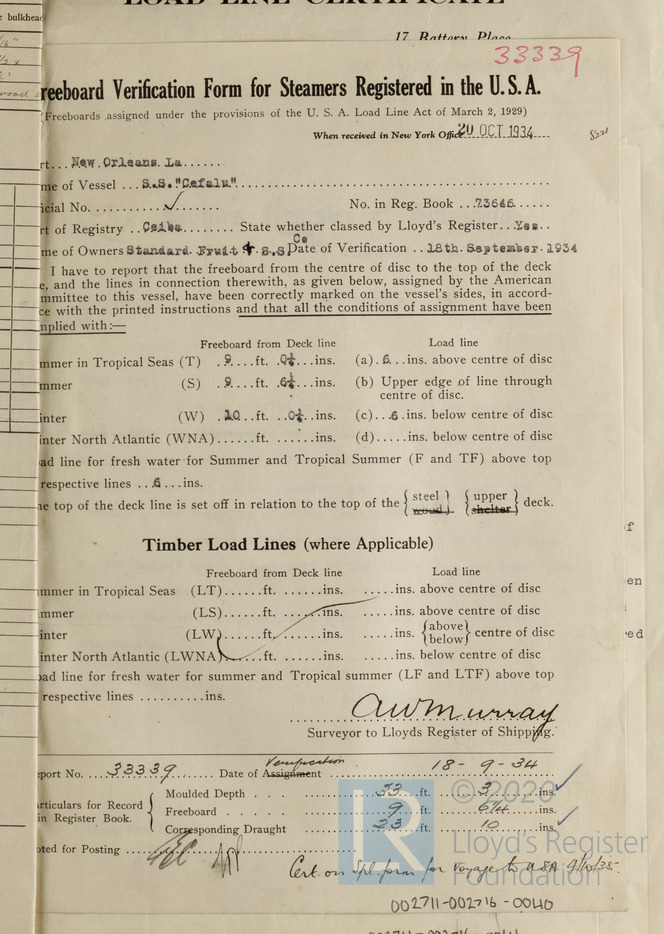 LOAD LINE CERTIFICATE
e bulkhead
17 Battery Place
33339
reeboard Verification Form for Steamers Registered in the U.S.A.
(Freeboards assigned under the provisions of the U. S. A. Load Line Act of March 2, 1929)
When received in New York Office 20 OCT 1934
rt... New Orleans. La......
me of Vessel ... S.S. "Cefalu"
icial No. ✓ No. in Reg. Book ..73646
rt of Registry ..Ceiba........ State whether classed by Lloyd's Register...Yes..
me of Owners Standard Fruit & S.S. Co Date of Verification ..18th. September. 1934
I have to report that the freeboard from the centre of disc to the top of the deck
e, and the lines in connection therewith, as given below, assigned by the American
mmittee to this vessel, have been correctly marked on the vessel's sides, in accord-
ce with the printed instructions and that all the conditions of assignment have been
nplied with:—
Freeboard from Deck line Load line
mmer in Tropical Seas (T) .9....ft. .0¼...ins. (a).6...ins. above centre of disc
mmer (S) .9....ft. .6¼...ins. (b) Upper edge of line through
centre of disc.
inter (W) .10...ft. .0¼...ins. (c)...6 ..ins. below centre of disc
inter North Atlantic (WNA)......ft. .......ins. (d).....ins. below centre of disc
ad line for fresh water for Summer and Tropical Summer (F and TF) above top
respective lines ...6....ins.
e top of the deck line is set off in relation to the top of the { steel wood } { upper shelter } deck.
Timber Load Lines (where Applicable)
Freeboard from Deck line Load line
mmer in Tropical Seas (LT)......ft. .......ins. .....ins. above centre of disc
mmer (LS)......ft. .......ins. .....ins. above centre of disc
inter (LW)......ft. .......ins. .....ins. {above below} centre of disc
inter North Atlantic (LWNA)......ft. .......ins. .....ins. below centre of disc
oad line for fresh water for summer and Tropical summer (LF and LTF) above top
respective lines ..........ins.
AWMurray
Surveyor to Lloyds Register of Shipping.
Verification
port No. ....33339........ Date of Assignment ........ 18-9-34
Moulded Depth . . . 33 ft. 3 ins. ✓
articulars for Record in Register Book. { Freeboard . . . . 9 ft. 6¼ ins.
Corresponding Draught 23 ft. 10 ins. ✓
oted for Posting
Cert. on Spl. form for voyage to USA 9/10/35.
© 2020
Lloyd's Register
Foundation
002711-002716-0040
f
en
ed